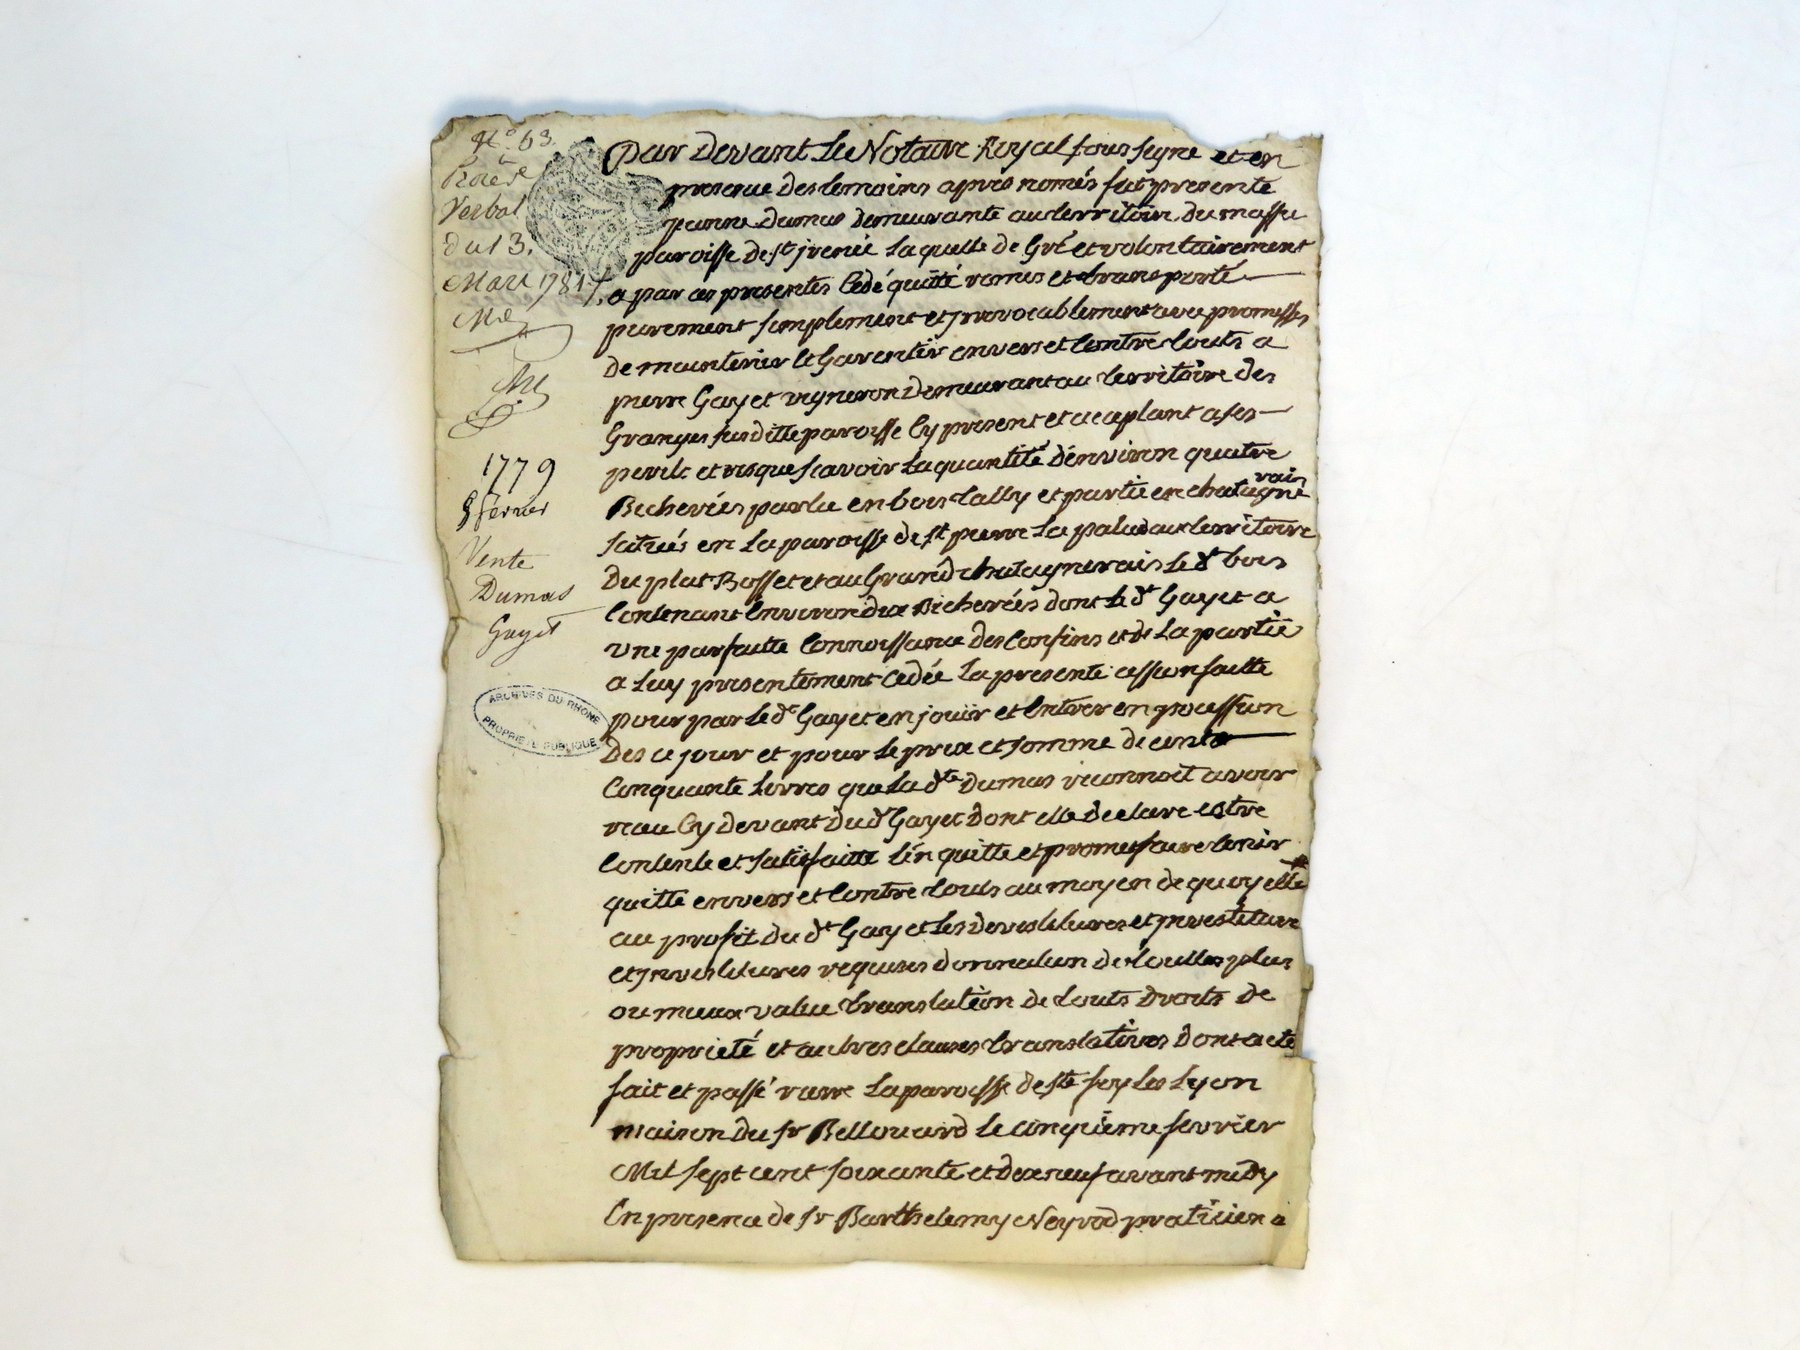 N.o 63
Verbal
du 13.
Mars 1781
Ne
Ne
1779
5 février
Vente
Dumas
Gayet
ARCHIVES DU RHONE
PROPRIETE PUBLIQUE
Par devant Le Notaire Royal sous signe et en
presence des temoins après només fut presente
jeanne Dumas demeurante au territoire du massu
paroisse de st jrenée Laquelle de Gré et volontairement
a par ces presentes Cédé quitté remis et transporté
purement simplement et jrrevocablement avec promesses
de maintenir et Garentir envers et Contre touts a
pierre Gayet vigneron demeurant au territoire des
Granges susditte paroisse Cy present et acceptant a ses
perils et risques scavoir La quantité d'environ quatre
Bicherées partie en bois tally et partie en chatagnerain
situés en La paroisse de st pierre La palud au territoire
Du plat Bosset et au Grand chatagnerais Le dt bois
Contenant Environ dix Bicherées dont Le dt Gayet a
vne parfaite Connoissance des Confins et de La partie
a Luy presentement Cédée La presente cession faitte
pour par Le dt Gayet en jouïr et Entrer en possession
Des ce jour et pour Le prix et somme de cent
Cinquante Livres que La dte Dumas reconnoit avoir
reçu Cy devant Dudt Gayet Dont elle declare estre
Contente et satisfaitte L'en quitte et promet faire tenir
quitte envers et Contre touts au moyen de quoy elle
au profit du dt Gayet Les devestitures et jnvestiture
et jnvestitures requises donnation de touttes plus
ou mieux value translation de touts droits de
proprieté et autres clauses translatives Dont acte
fait et passé riere La paroisse de ste foy Les Lyon
maison du sr Bellouard Le cinquième fevrier
Mil sept cent soixante et dix neuf avant midy
En presence de sr Barthelemy Neyrod praticien a